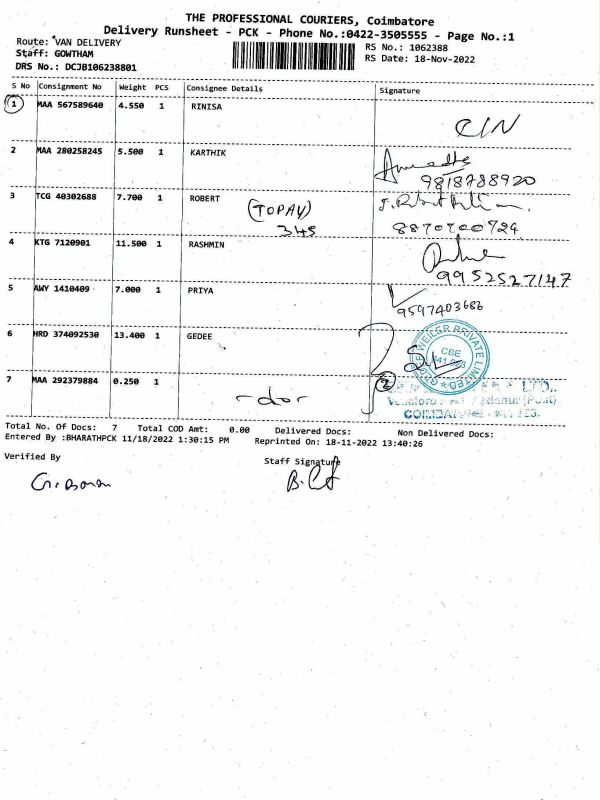 THE PROFESSIONAL COURIERS, Coimbatore
Delivery Runsheet - PCK - Phone No.:0422-3505555 - Page No.:1
Route: VAN DELIVERY
RS No.: 1062388
Staff: GOWTHAM
RS Date: 18-Nov-2022
DRS No.: DCJB106238801
S No Consignment No Weight PCS Consignee Details Signature
1 MAA 567589640 4.550 1 RINISA
CIN
2 MAA 280258245 5.500 1 KARTHIK
9818788920
3 TCG 40302688 7.700 1 ROBERT
(TOPAV)
345
4 KTG 7120901 11.500 1 RASHMIN
9952527147
5 AWY 1410409 7.000 1 PRIYA
9597403686
6 HRD 374092530 13.400 1 GEDEE
CBE
PRIVATE LIMITED
7 MAA 292379884 0.250 1
-do-
2
LTD.
Total No. Of Docs: 7 Total COD Amt: 0.00 Delivered Docs: Non Delivered Docs:
Entered By :BHARATHPCK 11/18/2022 1:30:15 PM Reprinted On: 18-11-2022 13:40:26
Verified By
Staff Signature